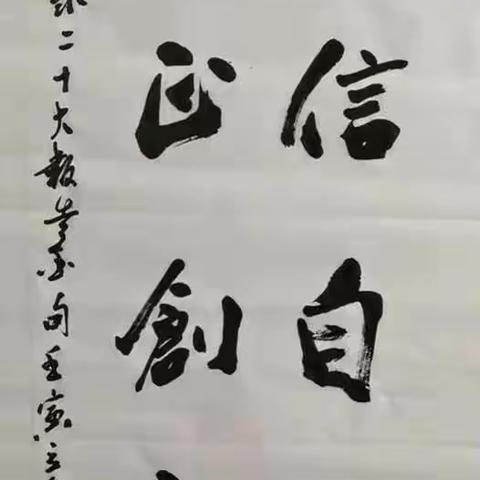 信自
正創
二十大報告金句壬寅